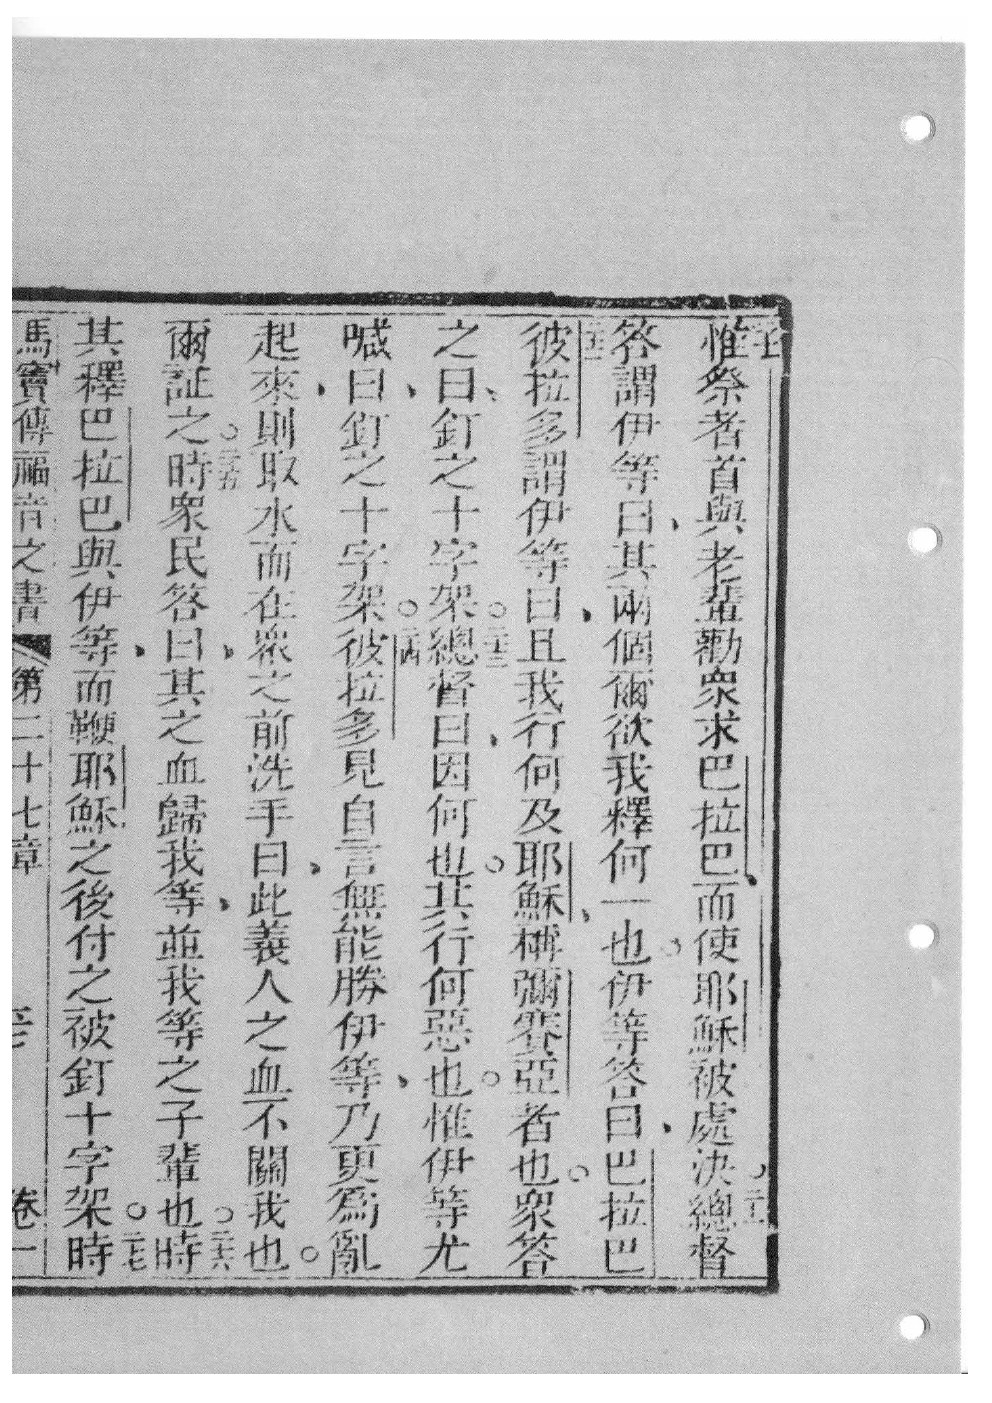 惟祭者首與老輩勸衆求巴拉巴而使耶穌被處決總督
答謂伊等曰其兩個爾欲我釋何一也伊等答曰巴拉巴
彼拉多謂伊等曰且我行何及耶穌稱彌賽亞者也衆答
之曰釘之十字架總督曰因何也其行何惡也惟伊等尤
喊曰釘之十字架彼拉多見自言無能勝伊等乃更爲亂
起來則取水而在衆之前洗手曰此義人之血不關我也
爾証之時衆民答曰其之血歸我等並我等之子輩也時
其釋巴拉巴與伊等而鞭耶穌之後付之被釘十字架時
馬竇傳福音之書 第二十七章 卷一